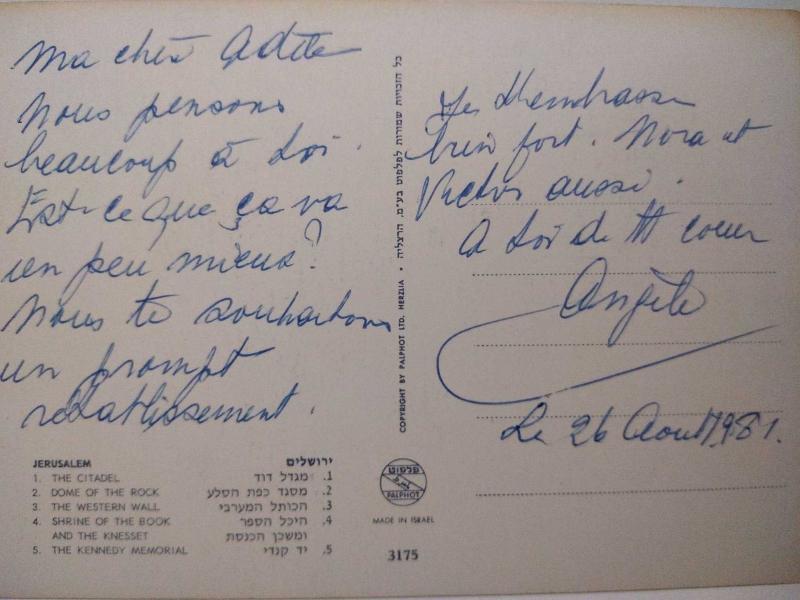 Ma chère Adèle
Nous pensons
beaucoup à toi.
Est-ce que ça va
un peu mieux?
Nous te souhaitons
un prompt
rétablissement.
JERUSALEM
1. THE CITADEL
2. DOME OF THE ROCK
3. THE WESTERN WALL
4. SHRINE OF THE BOOK
AND THE KNESSET
5. THE KENNEDY MEMORIAL
ירושלים
1. מגדל דוד
2. מסגד כפת הסלע
3. הכותל המערבי
4. היכל הספר
ומשכן הכנסת
5. יד קנדי
COPYRIGHT BY PALPHOT LTD. HERZLIA • כל הזכויות שמורות לפלפוט בע"מ. הרצליה
פלפוט
PALPHOT
MADE IN ISRAEL
3175
Je t'embrasse
bien fort. Nora et
Victor aussi.
A toi de tt coeur
Angèle
Le 26 Aout 1981.